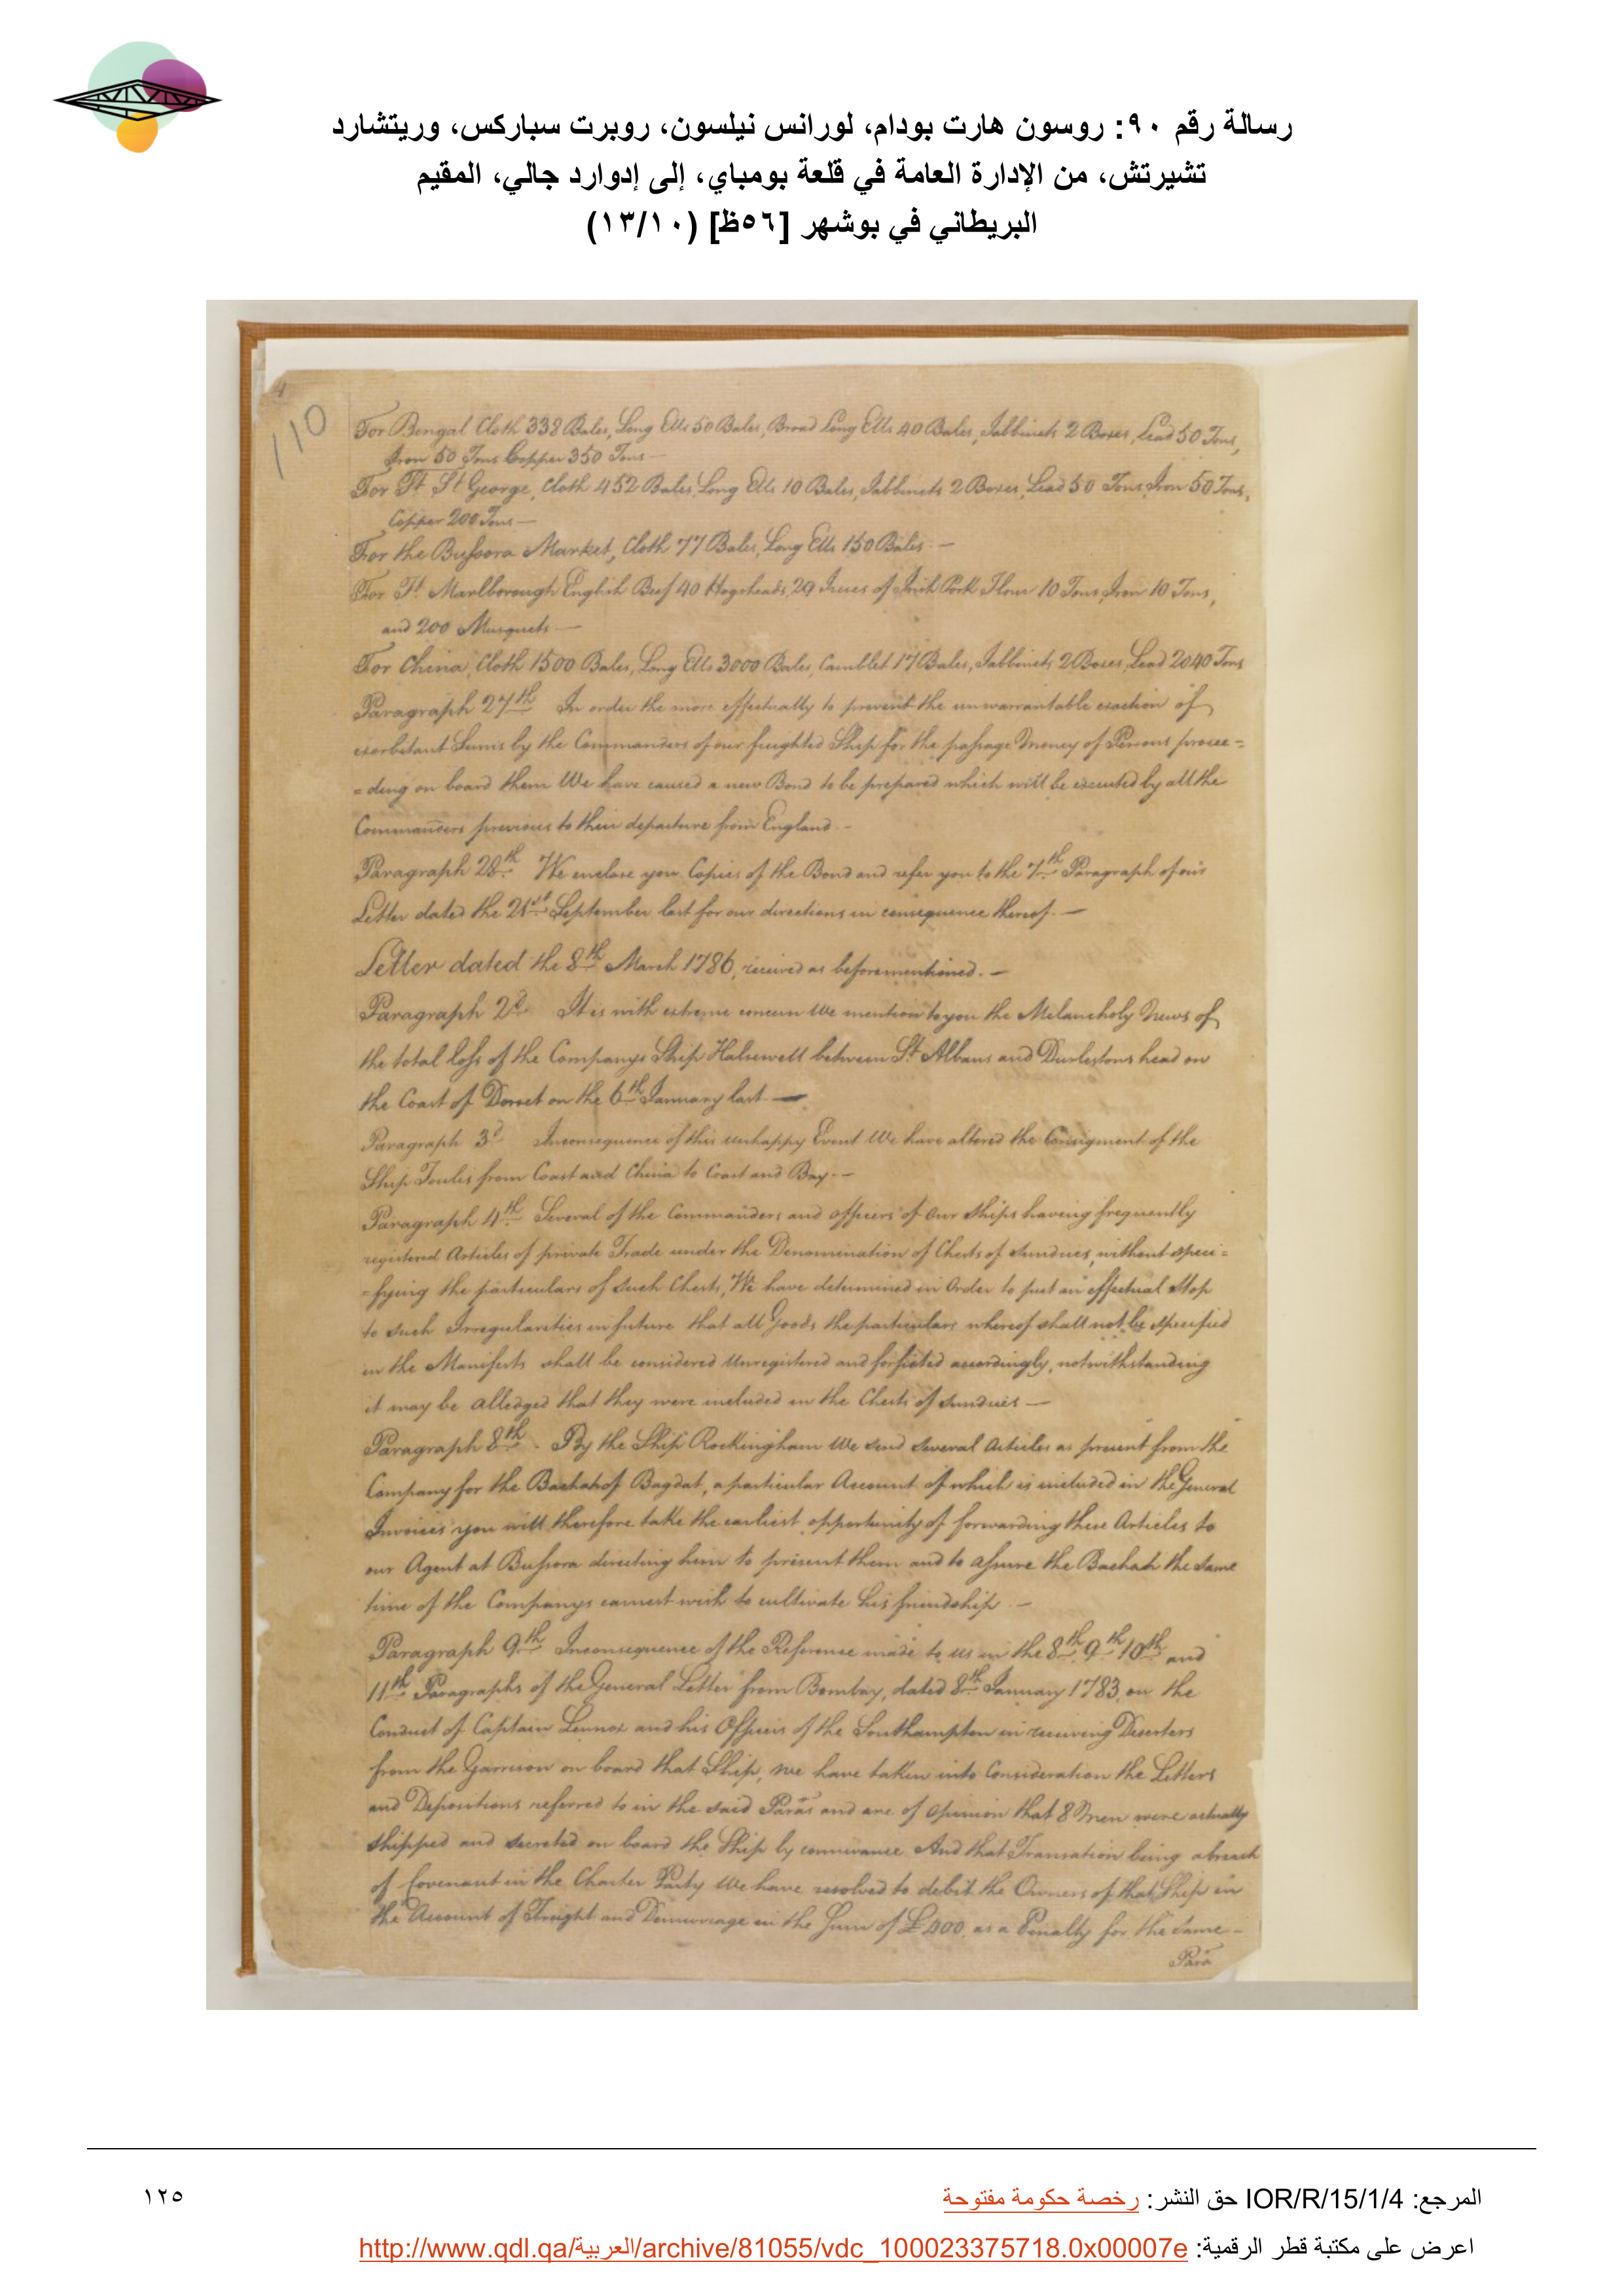 رسالة رقم ٩٠: روسون هارت بودام، لورانس نيلسون، روبرت سباركس، وريتشارد
تشيرتش، من الإدارة العامة في قلعة بومباي، إلى إدوارد جالي، المقيم
البريطاني في بوشهر [٥٦ظ] (١٣/١٠)
4
110
For Bengal Cloth 338 Bales, Long Ells 50 Bales, Broad Long Ells 40 Bales, Tabbinets 2 Boxes, Lead 50 Tons,
Iron 50 Tons Copper 350 Tons —
For Ft. St George, Cloth 452 Bales, Long Ells 10 Bales, Tabbinets 2 Boxes, Lead 50 Tons, Iron 50 Tons,
Copper 200 Tons —
For the Bussora Market, Cloth 77 Bales, Long Ells 150 Bales. —
For Ft. Marlborough English Beef 40 Hogsheads, 29 Tierces of Irish Pork Flour 10 Tons, Iron 10 Tons,
and 200 Musquets —
For China, Cloth 1500 Bales, Long Ells 3000 Bales, Camblet 17 Bales, Tabbinets 2 Boxes, Lead 2040 Tons
Paragraph 27th. In order the more effectually to prevent the unwarrantable exaction of
exorbitant Sums by the Commanders of our freighted Ship for the passage Money of Persons procee=
=ding on board them We have caused a new Bond to be prepared which will be executed by all the
Commanders previous to their departure from England. -
Paragraph 28th. We enclose you Copies of the Bond and refer you to the 7th. Paragraph of our
Letter dated the 21st September last for our directions in consequence thereof. —
Letter dated the 8th March 1786, received as beforementioned. —
Paragraph 2d. It is with extreme concern We mention to you the Melancholy News of
the total loss of the Companys Ship Halsewell between St. Albans and Durlestons head on
the Coast of Dorset on the 6th January last. —
Paragraph 3d. Inconsequence of this unhappy Event We have altered the Consigment of the
Ship Foulis from Coast and China to Coast and Bay. -
Paragraph 4th. Several of the Commanders and officers of our Ships having frequently
registered Articles of private Trade under the Denomination of Chests of Sundries, without speci=
=fying the particulars of such Chests, We have determined in Order to put an effectual Stop
to such Irregularities in future that all Goods the particulars whereof shall not be specified
in the Manifests shall be considered Unregistered and forfieted accordingly, notwithstanding
it may be alledged that they were included in the Chests of Sundries —
Paragraph 8th. By the Ship Rockingham We send several Articles as present from the
Company for the Bashah of Bagdat, a particular Account of which is included in the General
Invoices you will therefore take the earliest opportunity of forwarding these Articles to
our Agent at Bussora directing him to present them and to assure the Bashah the same
time of the Companys earnest wish to cultivate his friendship. —
Paragraph 9th. Inconsequence of the Reference made to us in the 8th 9th 10th and
11th Paragraphs of the General Letter from Bombay, dated 8th January 1783, on the
Conduct of Captain Lennox and his Officers of the Southampton in receiving Deserters
from the Garrison on board that Ship, we have taken into Consideration the Letters
and Depositions referred to in the said Paras and are of Opinion that 8 Men were actually
shipped and secreted on board the Ship by connivance And that Transation being a breach
of Covenant in the Charter Party We have resolved to debit the Owners of that Ship in
the Account of Freight and Demurrage in the Sum of £400, as a Penalty for the same -
Para
المرجع: IOR/R/15/1/4 حق النشر: رخصة حكومة مفتوحة
١٢٥
اعرض على مكتبة قطر الرقمية: http://www.qdl.qa/العربية/archive/81055/vdc_100023375718.0x00007e